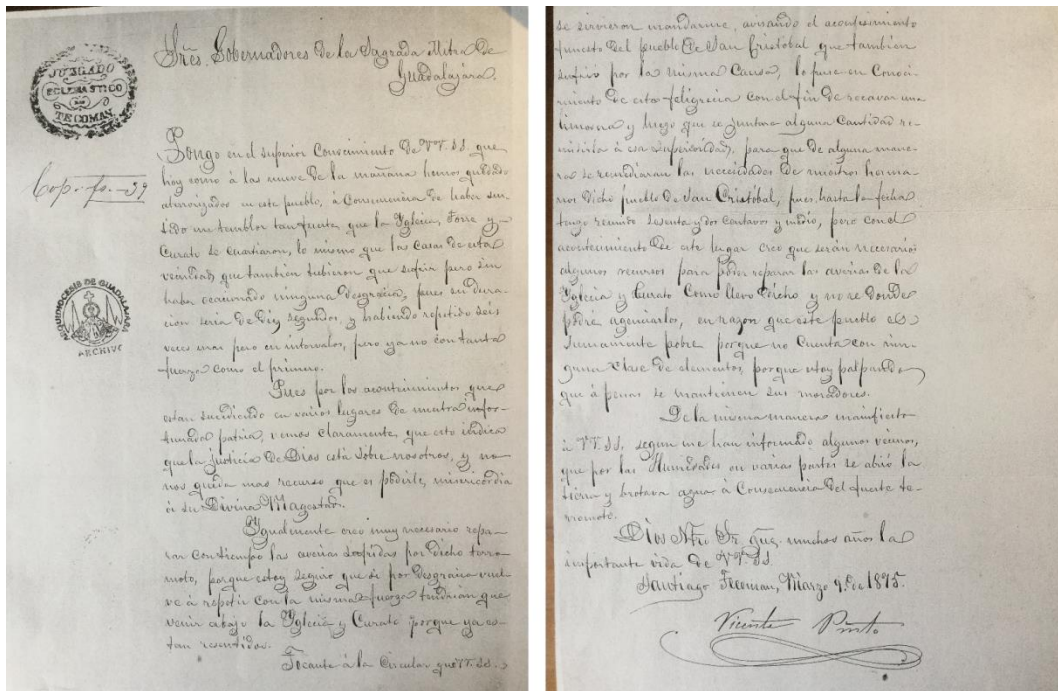 JUZGADO
ECLESIASTICO
DE
TECOMAN
Sres. Gobernadores de la Sagrada Mitra de
Guadalajara.
Cop. fs. 39
Pongo en el superior Conocimiento de VV. SS. que
hoy como á las nueve de la mañana hemos quedado
atmorizados en este pueblo, á Consecuencia de haber sen-
tido un temblor tan fuerte, que la Yglecia, Torre y
Curato se cuartiaron, lo mismo que las Casas de esta
vecindad, que tambien tubieron que sufrir pero sin
haber ocacionado ninguna desgracia, pues su dura-
cion seria de diez segundos, y habiendo repetido seis
veces mas pero en intervalos, pero ya no con tanta
fuerza como el primero.
ARQUIDIOCESIS DE GUADALAJARA
ARCHIVO
Pues por los acontecimientos que
estan sucediendo en varios lugares de nuestra infor-
tunada patria, vemos claramente, que esto indica
que la justicia de Dios está sobre nosotros, y no
nos queda mas recurso que es pedirle, misericordia
á su Divina Magestad.
Ygualmente creo muy necesario repa-
rar con tiempo las averias sufridas por dicho terre-
moto, porque estoy seguro que si por desgracia vuel-
ve á repetir con la misma fuerza tendrian que
venir abajo la Yglecia y Curato porque ya es-
tan resentidos.
Tocante á la Circular que VV. SS.
se sirvieron mandarme, avisando el acontecimiento
funesto del pueblo de San Cristobal que tambien
sufrió por la misma Causa, lo puse en Conoci-
miento de estos feligrecia con el fin de recavar una
limosna y luego que se juntara alguna Cantidad re-
mitirla á esa superioridad, para que de alguna mane-
ra se remediaran las necesidades de nuestros herma-
nos dicho pueblo de San Cristobal, pues hasta la fecha
tengo reunido sesenta y dos centavos y medio, pero con el
acontecimiento de este lugar creo que serán necesarios
algunos recursos para poder reparar las averias de la
Yglecia y Curato Como llevo dicho, y no se donde
podré agenciarlos, en razon que este pueblo es
sumamente pobre porque no Cuenta con nin-
guna clase de elementos, porque estoy palpando
que á penas se mantienen sus moradores.
De la misma manera manifiesto
á VV. SS. segun me han informado algunos vecinos,
que por las Humedades en varias partes se abrió la
tierra y brotava agua á Consecuencia del fuerte te-
rremoto.
Dios Ntro. Sr. gue. muchos años la
importante vida de VV. SS
Santiago Tecoman, Marzo 9. de 1875.
Vicente Pinto